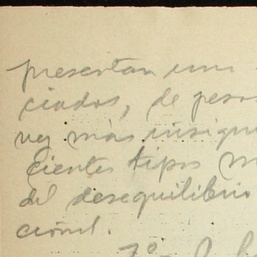 presentan una
ciados, de
vez más insign
cientes tipos
del desequilibrio
cional.
7º